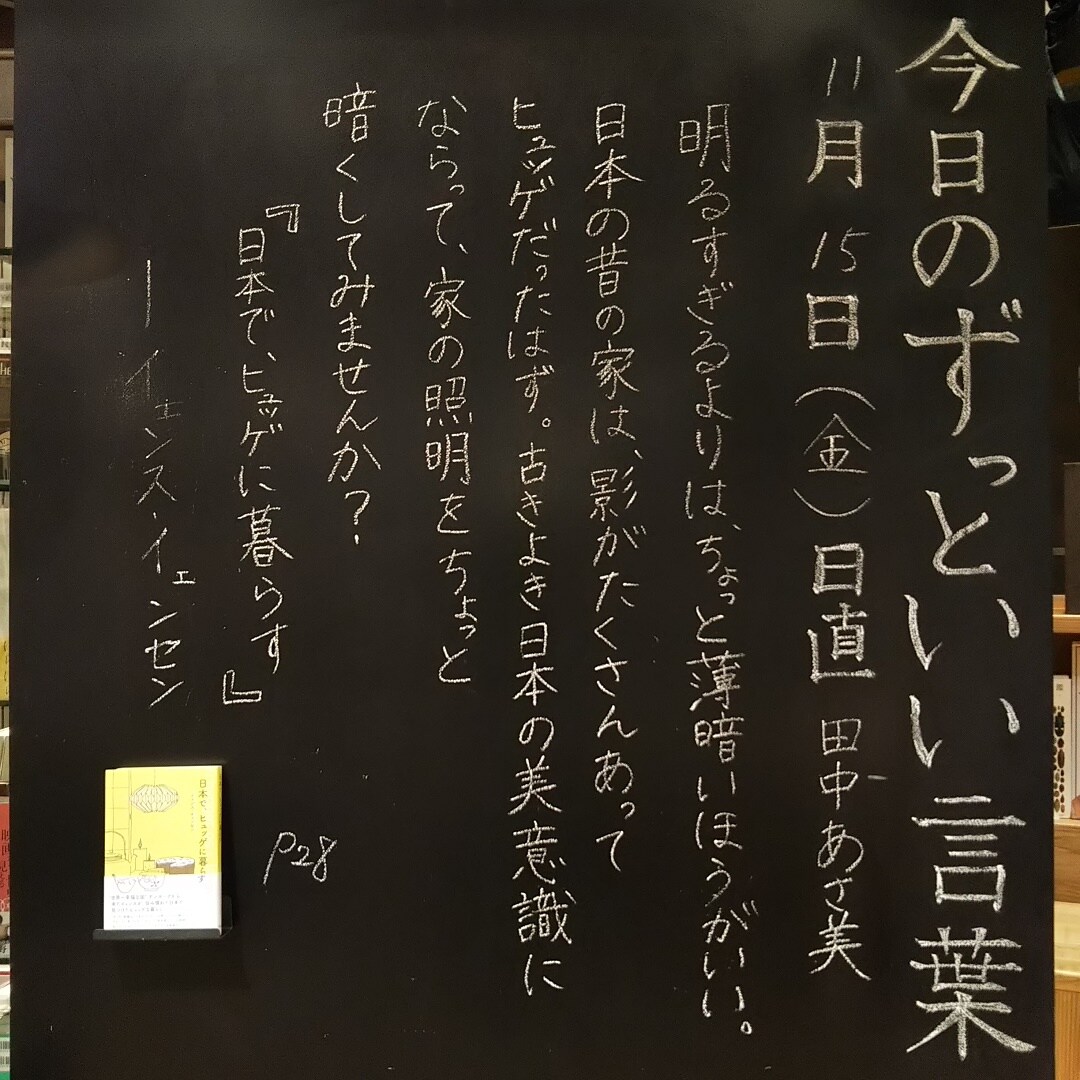 今日のずっといい言葉
11月15日(金)日直 田中あさ美
明るすぎるよりは、ちょっと薄暗いほうがいい。
日本の昔の家は、影がたくさんあって
ヒュッゲだったはず。古きよき日本の美意識に
ならって、家の照明をちょっと
暗くしてみませんか？
『日本で、ヒュッゲに暮らす』
P28
ー イェンス・イェンセン
日本で、ヒュッゲに暮らす